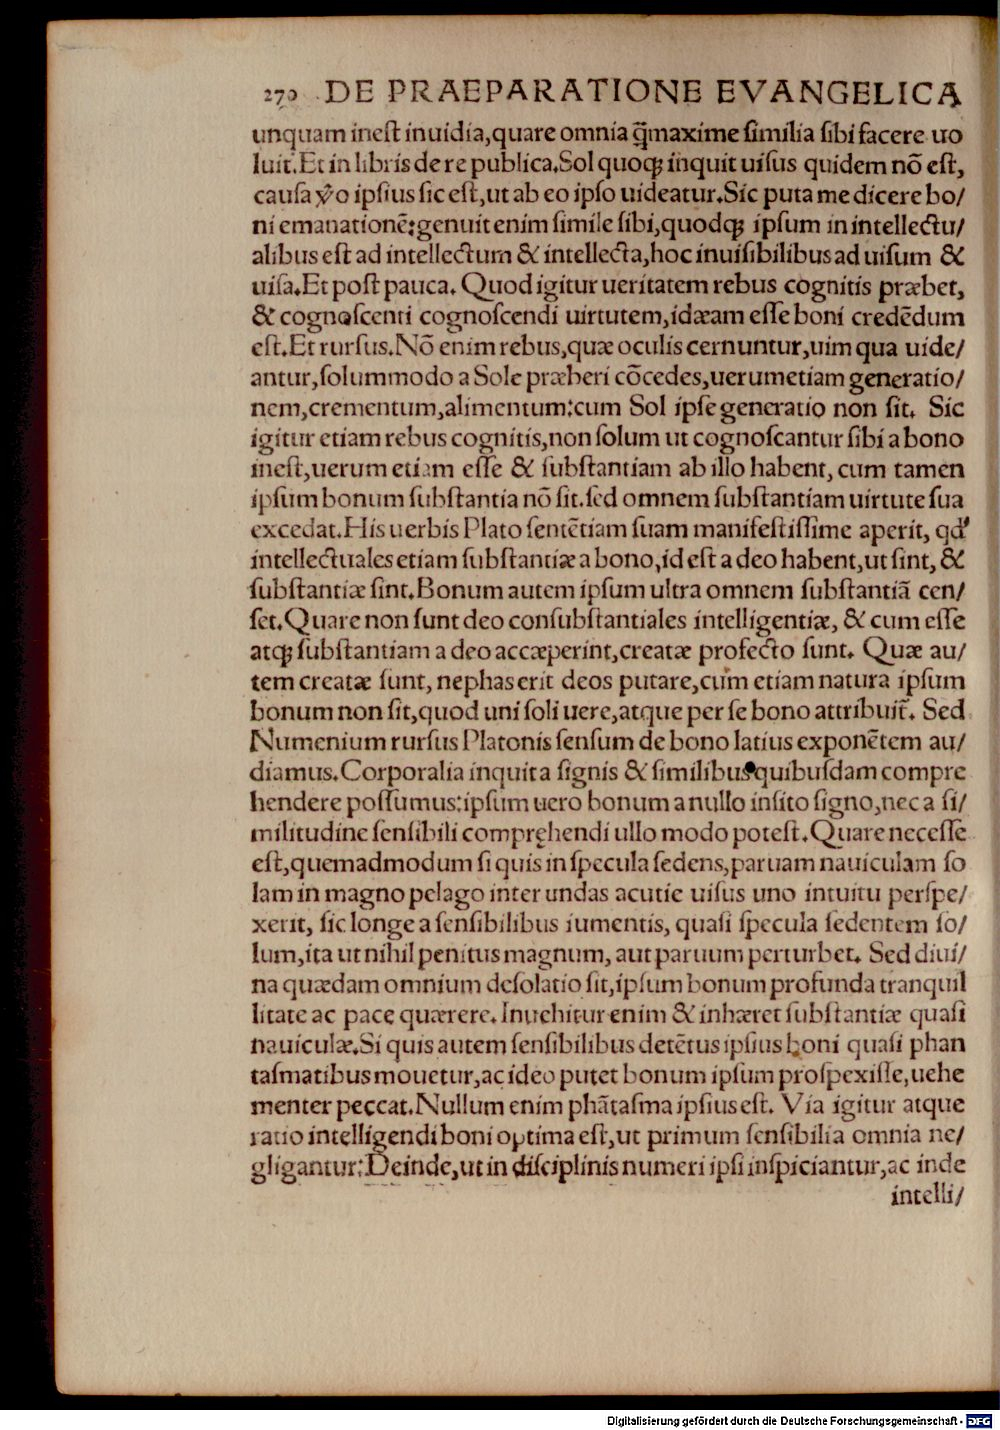 270 DE PRAEPARATIONE EVANGELICA
unquam ineſt inuidia,quare omnia q̃maxime ſimilia ſibi facere uo
luit.Et in libris de re publica.Sol quoqꝫ inquit uiſus quidem nõ eſt,
cauſa ṽo ipſius ſic eſt,ut ab eo ipſo uideatur.Sic puta me dicere bo/
ni emanationẽ:genuit enim ſimile ſibi,quodqꝫ ipſum in intellectu/
alibus eſt ad intellectum & intellecta,hoc inuiſibilibus ad uiſum &
uiſa.Et poſt pauca. Quod igitur ueritatem rebus cognitis præbet,
& cognoſcenti cognoſcendi uirtutem,idæam eſſe boni credẽdum
eſt.Et rurſus.Nõ enim rebus,quæ oculis cernuntur,uim qua uide/
antur,ſolummodo a Sole præberi cõcedes,uerumetiam generatio/
nem,crementum,alimentum:cum Sol ipſe generatio non ſit. Sic
igitur etiam rebus cognitis,non ſolum ut cognoſcantur ſibi a bono
ineſt,uerum etiam eſſe & ſubſtantiam ab illo habent, cum tamen
ipſum bonum ſubſtantia nõ ſit.ſed omnem ſubſtantiam uirtute ſua
excedat.His uerbis Plato ſentẽtiam ſuam manifeſtiſſime aperit, qd'
intellectuales etiam ſubſtantiæ a bono,id eſt a deo habent,ut ſint, &
ſubſtantiæ ſint.Bonum autem ipſum ultra omnem ſubſtantiã cen/
ſet.Quare non ſunt deo conſubſtantiales intelligentiæ, & cum eſſe
atqꝫ ſubſtantiam a deo accæperint,creatæ profecto ſunt. Quæ au/
tem creatæ ſunt, nephas erit deos putare,cum etiam natura ipſum
bonum non ſit,quod uni ſoli uere,atque per ſe bono attribuit̃. Sed
Numenium rurſus Platonis ſenſum de bono latius exponẽtem au/
diamus.Corporalia inquit a ſignis & ſimilibus quibuſdam compre
hendere poſſumus:ipſum uero bonum a nullo inſito ſigno,nec a ſi/
militudine ſenſibili comprehendi ullo modo poteſt.Quare neceſſe
eſt,quemadmodum ſi quis in ſpecula ſedens,paruam nauiculam ſo
lam in magno pelago inter undas acutie uiſus uno intuitu perſpe/
xerit, ſic longe a ſenſibilibus iumentis, quaſi ſpecula ſedentem ſo/
lum,ita ut nihil penitus magnum, aut paruum perturbet. Sed diui/
na quædam omnium deſolatio ſit,ipſum bonum profunda tranquil
litate ac pace quærere.Inuehitur enim & inhæret ſubſtantiæ quaſi
nauiculæ.Si quis autem ſenſibilibus detẽtus ipſius boni quaſi phan
taſmatibus mouetur,ac ideo putet bonum ipſum proſpexiſſe,uehe
menter peccat.Nullum enim phãtaſma ipſius eſt. Via igitur atque
ratio intelligendi boni optima eſt,ut primum ſenſibilia omnia ne/
gligantur:Deinde,ut in diſciplinis numeri ipſi inſpiciantur,ac inde
intelli/
Digitalisierung gefördert durch die Deutsche Forschungsgemeinschaft - DFG